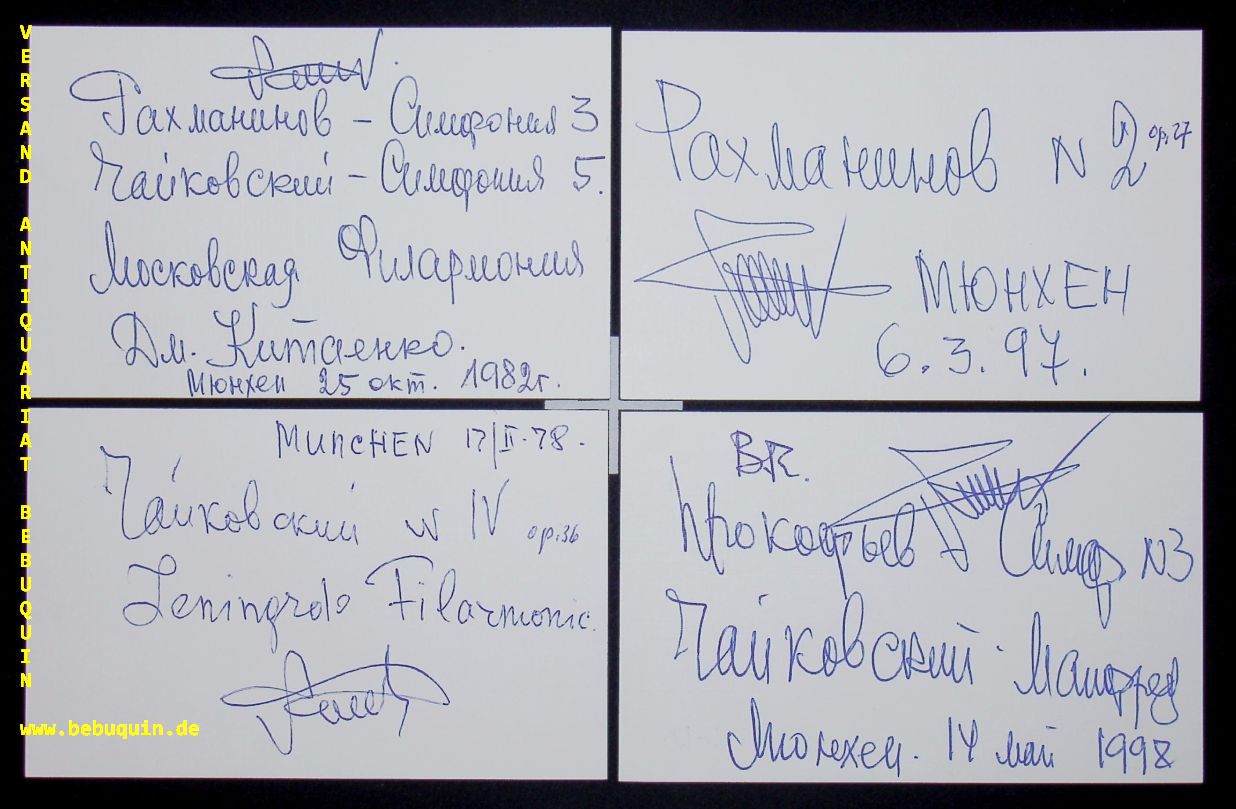 VERSAND ANTIQUARIAT BEBUQUIN
Рахманинов – Симфония 3
Чайковский – Симфония 5.
Московская Филармония
Дм. Китаенко.
Мюнхен 25 окт. 1982г.
Рахманинов N 2 op.27
МЮНХЕН
6.3.97.
MUnCHEN 17/II-78.
Чайковский N IV op.36
Leningrado Filarmonic.
BR.
Прокофьев Симф. N3
Чайковский - Манфред
Мюнхен. 14 май 1998
www.bebuquin.de